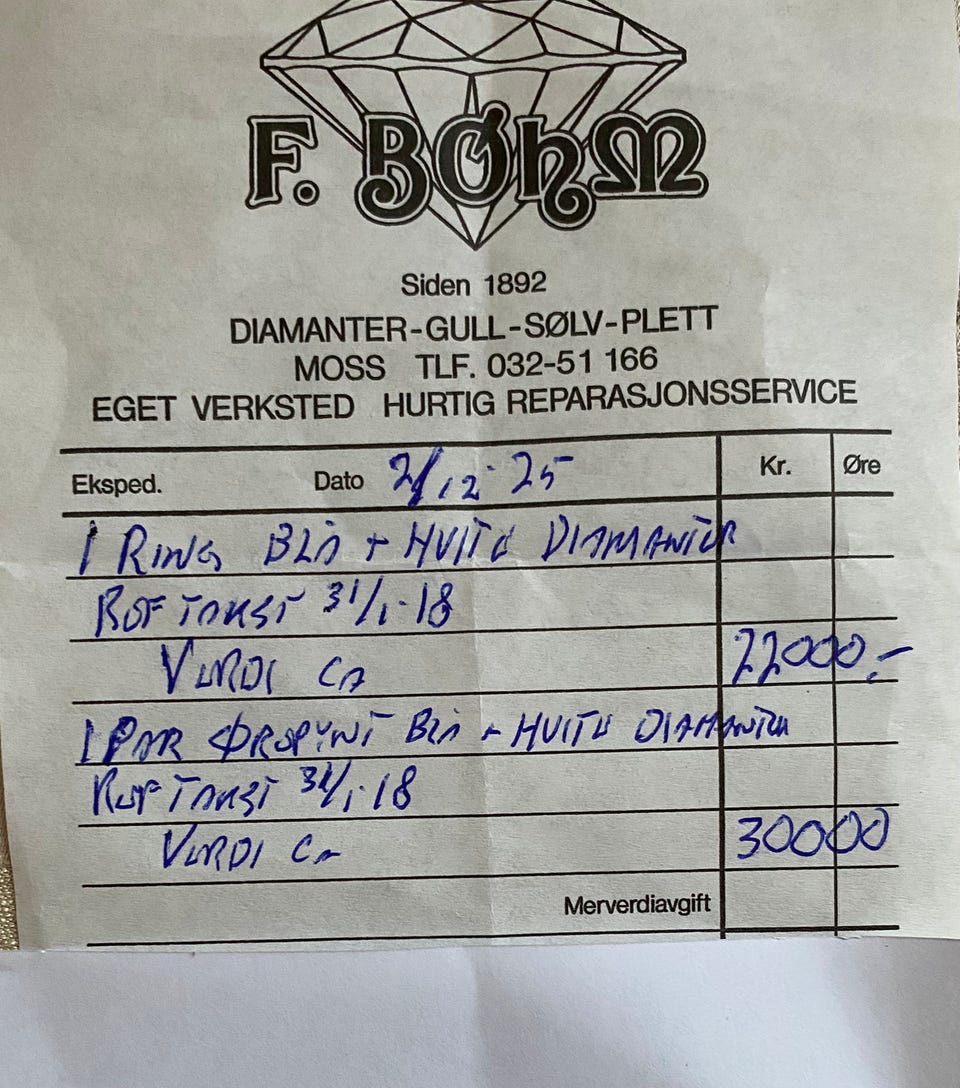 F. BØHM
Siden 1892
DIAMANTER-GULL-SØLV-PLETT
MOSS TLF. 032-51 166
EGET VERKSTED HURTIG REPARASJONSSERVICE
Eksped. Dato 2/12-25 Kr. Øre
1 RING BLÅ + HVITE DIAMANTER
REF TAKST 31/1-18
VERDI CA 22000,-
1 PAR ØREPYNT BLÅ + HVITE DIAMANTER
REF TAKST 31/1-18
VERDI CA 30000
Merverdiavgift